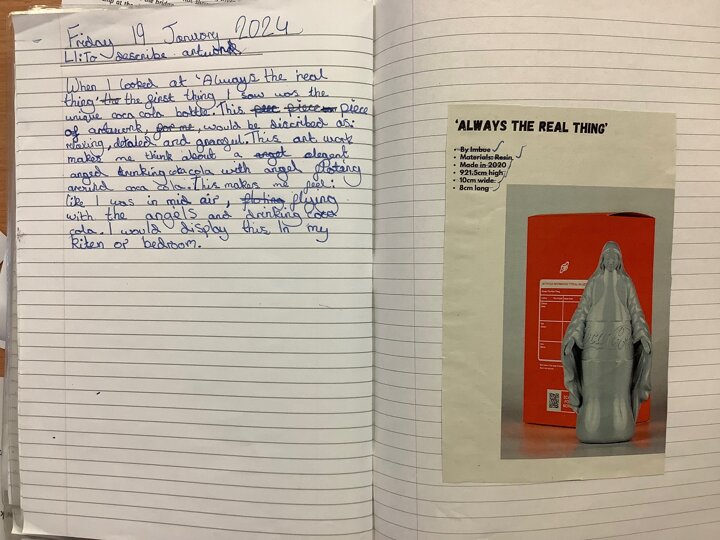 Friday 19 January 2024
LI:To describe artwork
When I looked at 'Always the real
thing' the the first thing I saw was the
unique coca cola bottle. This piece
of artwork, for me, would be discribed as:
relaxing, detaled and gracegul. This art work
makes me think about a angel elegent
angel drinking cocacola with angel floteng
around coca cola. This makes me feel:
like I was in mid air, floting flying
with the angels and drinking coca
cola. I would display this In my
kiten or bedroom.
'ALWAYS THE REAL THING'
• By Imbue
• Materials: Resin,
• Made in 2020
• 921.5cm high
• 10cm wide
• 8cm long